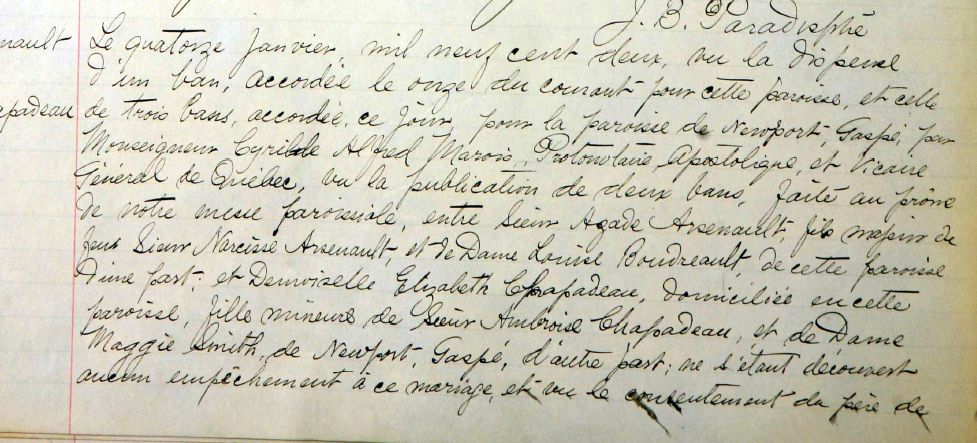 J. B. Paradis ptre
nault Le quatorze Janvier, mil neuf cent deux, vu la dispense
d'un ban, accordée le onze du courant pour cette paroisse, et celle
apadeau de trois bans, accordée, ce jour, pour la paroisse de Newport, Gaspé, par
Monseigneur Cyrille Alfred Marois, Protonotaire, Apostolique, et Vicaire
Général de Québec, vu la publication de deux bans, faite au prône
de notre messe paroissiale, entre Sieur Agade Arsenault, fils majeur de
feus Sieur Narcisse Arsenault, et de Dame Louise Boudreault, de cette paroisse
d'une part; et Demoiselle Elizabeth Chapadeau, domiciliée en cette
paroisse, fille mineure de Sieur Ambroise Chapadeau, et de Dame
Maggie Smith, de Newport, Gaspé, d'autre part; ne s'étant découvert
aucun empêchement à ce mariage, et vu le consentement du père de